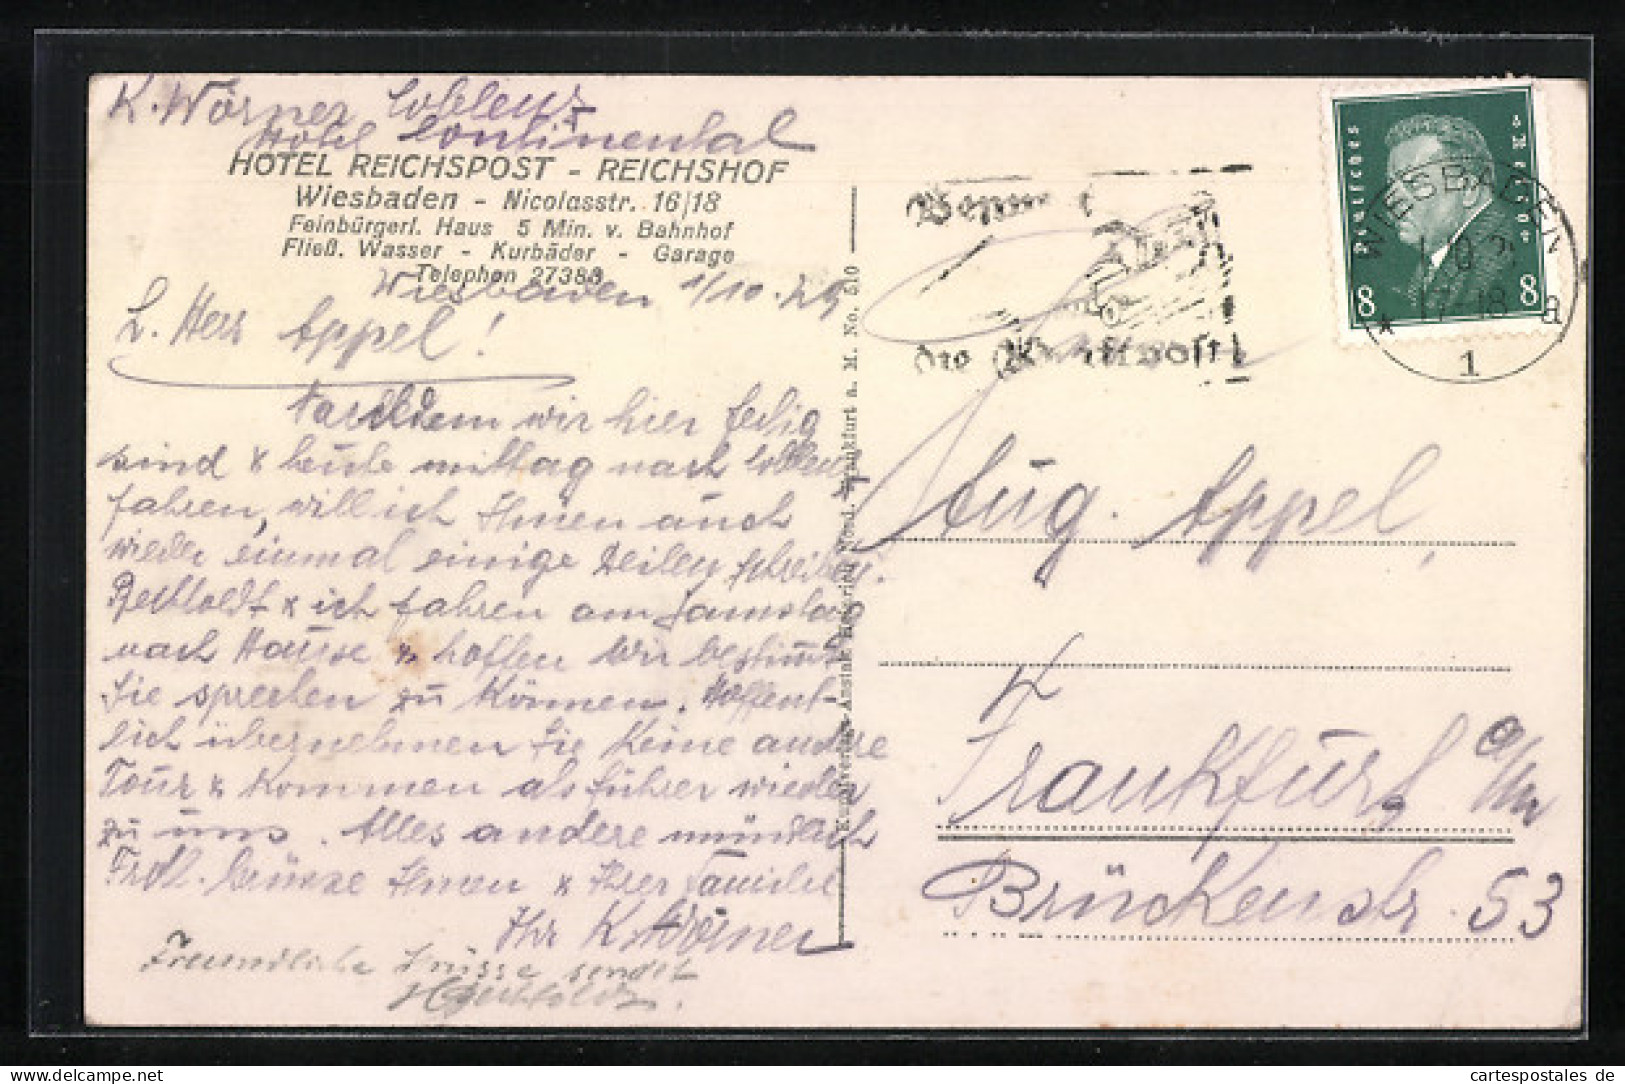 K. Wörner Coblenz
Hotel Continental
HOTEL REICHSPOST - REICHSHOF
Wiesbaden - Nicolasstr. 16/18
Feinbürgerl. Haus 5 Min. v. Bahnhof
Fließ. Wasser - Kurbäder - Garage
Telephon 27388
Wiesbaden 1/10. 29
L. Herr Appel!
Nachdem wir hier fertig
sind & heute mittag nach Coblenz
fahren, will ich Ihnen auch
wieder einmal einige Zeilen schreiben.
Bechtoldt & ich fahren am Samstag
nach Hause & hoffen wir bestimmt
Sie sprechen zu können. Hoffent-
lich übernehmen Sie keine andere
Tour & kommen als Führer wieder
zu uns. Alles andere mündlich
Frdl. Grüsse Ihnen & Ihrer Familie
Ihr K. Wörner
Freundliche Grüsse sendet
Kunstverlags-Anstalt Heinrich Nord. Frankfurt a. M. No. 510
Benutzt
die Kraftpost!
Deutsches Reich
8 8
WIESBADEN
1.10.2
17-18
* 1 a
Aug. Appel,
Frankfurt a/M
Brückenstr. 53
cartespostales de